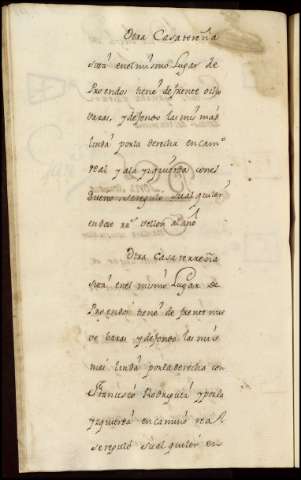 Otra Casa terreña
sitta en el mismo Lugar de
tiene de frente ocho
Varas, y de fondo las mismas
linda por la derecha con camº
real y a la yzquierda con el
dueño se reguló su alquiler
en doce rrs vellon al año
Otra Casa terreña
sitta en el mismo Lugar de
tiene de frente nue
ve baras y de fondo las mis
mas linda por la derecha con
Francisco Rodriguez y por la
yzquierda con camino real
se reguló su alquiler en